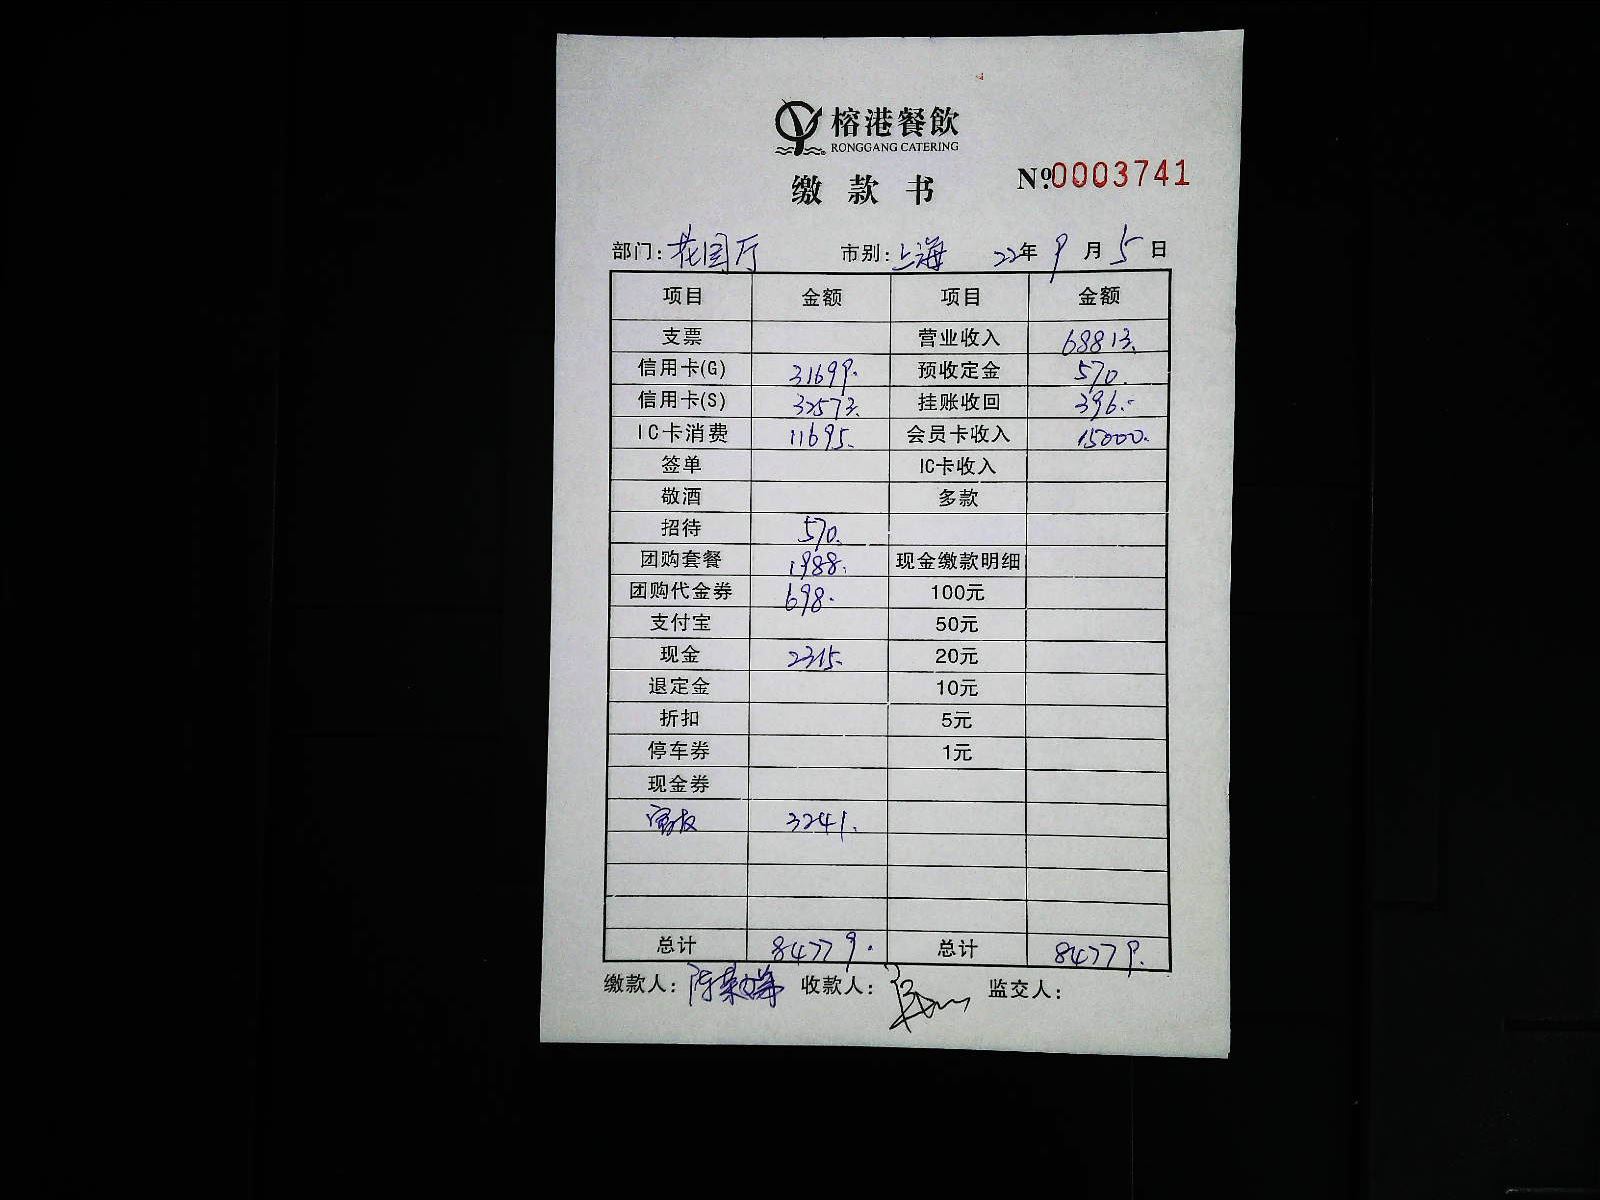 榕港餐飲
RONGGANG CATERING
缴款书 Nº.0003741
部门: 花园厅 市别: 上海 22年 9月 5日
项目 金额 项目 金额
支票 营业收入 68813.
信用卡(G) 31699. 预收定金 570.
信用卡(S) 32573. 挂账收回 396.-
IC卡消费 11695. 会员卡收入 15000.
签单 IC卡收入
敬酒 多款
招待 570.
团购套餐 1988. 现金缴款明细
团购代金券 698. 100元
支付宝 50元
现金 2315. 20元
退定金 10元
折扣 5元
停车券 1元
现金券
3241.
总计 84779. 总计 84779.
缴款人: 收款人: 监交人: